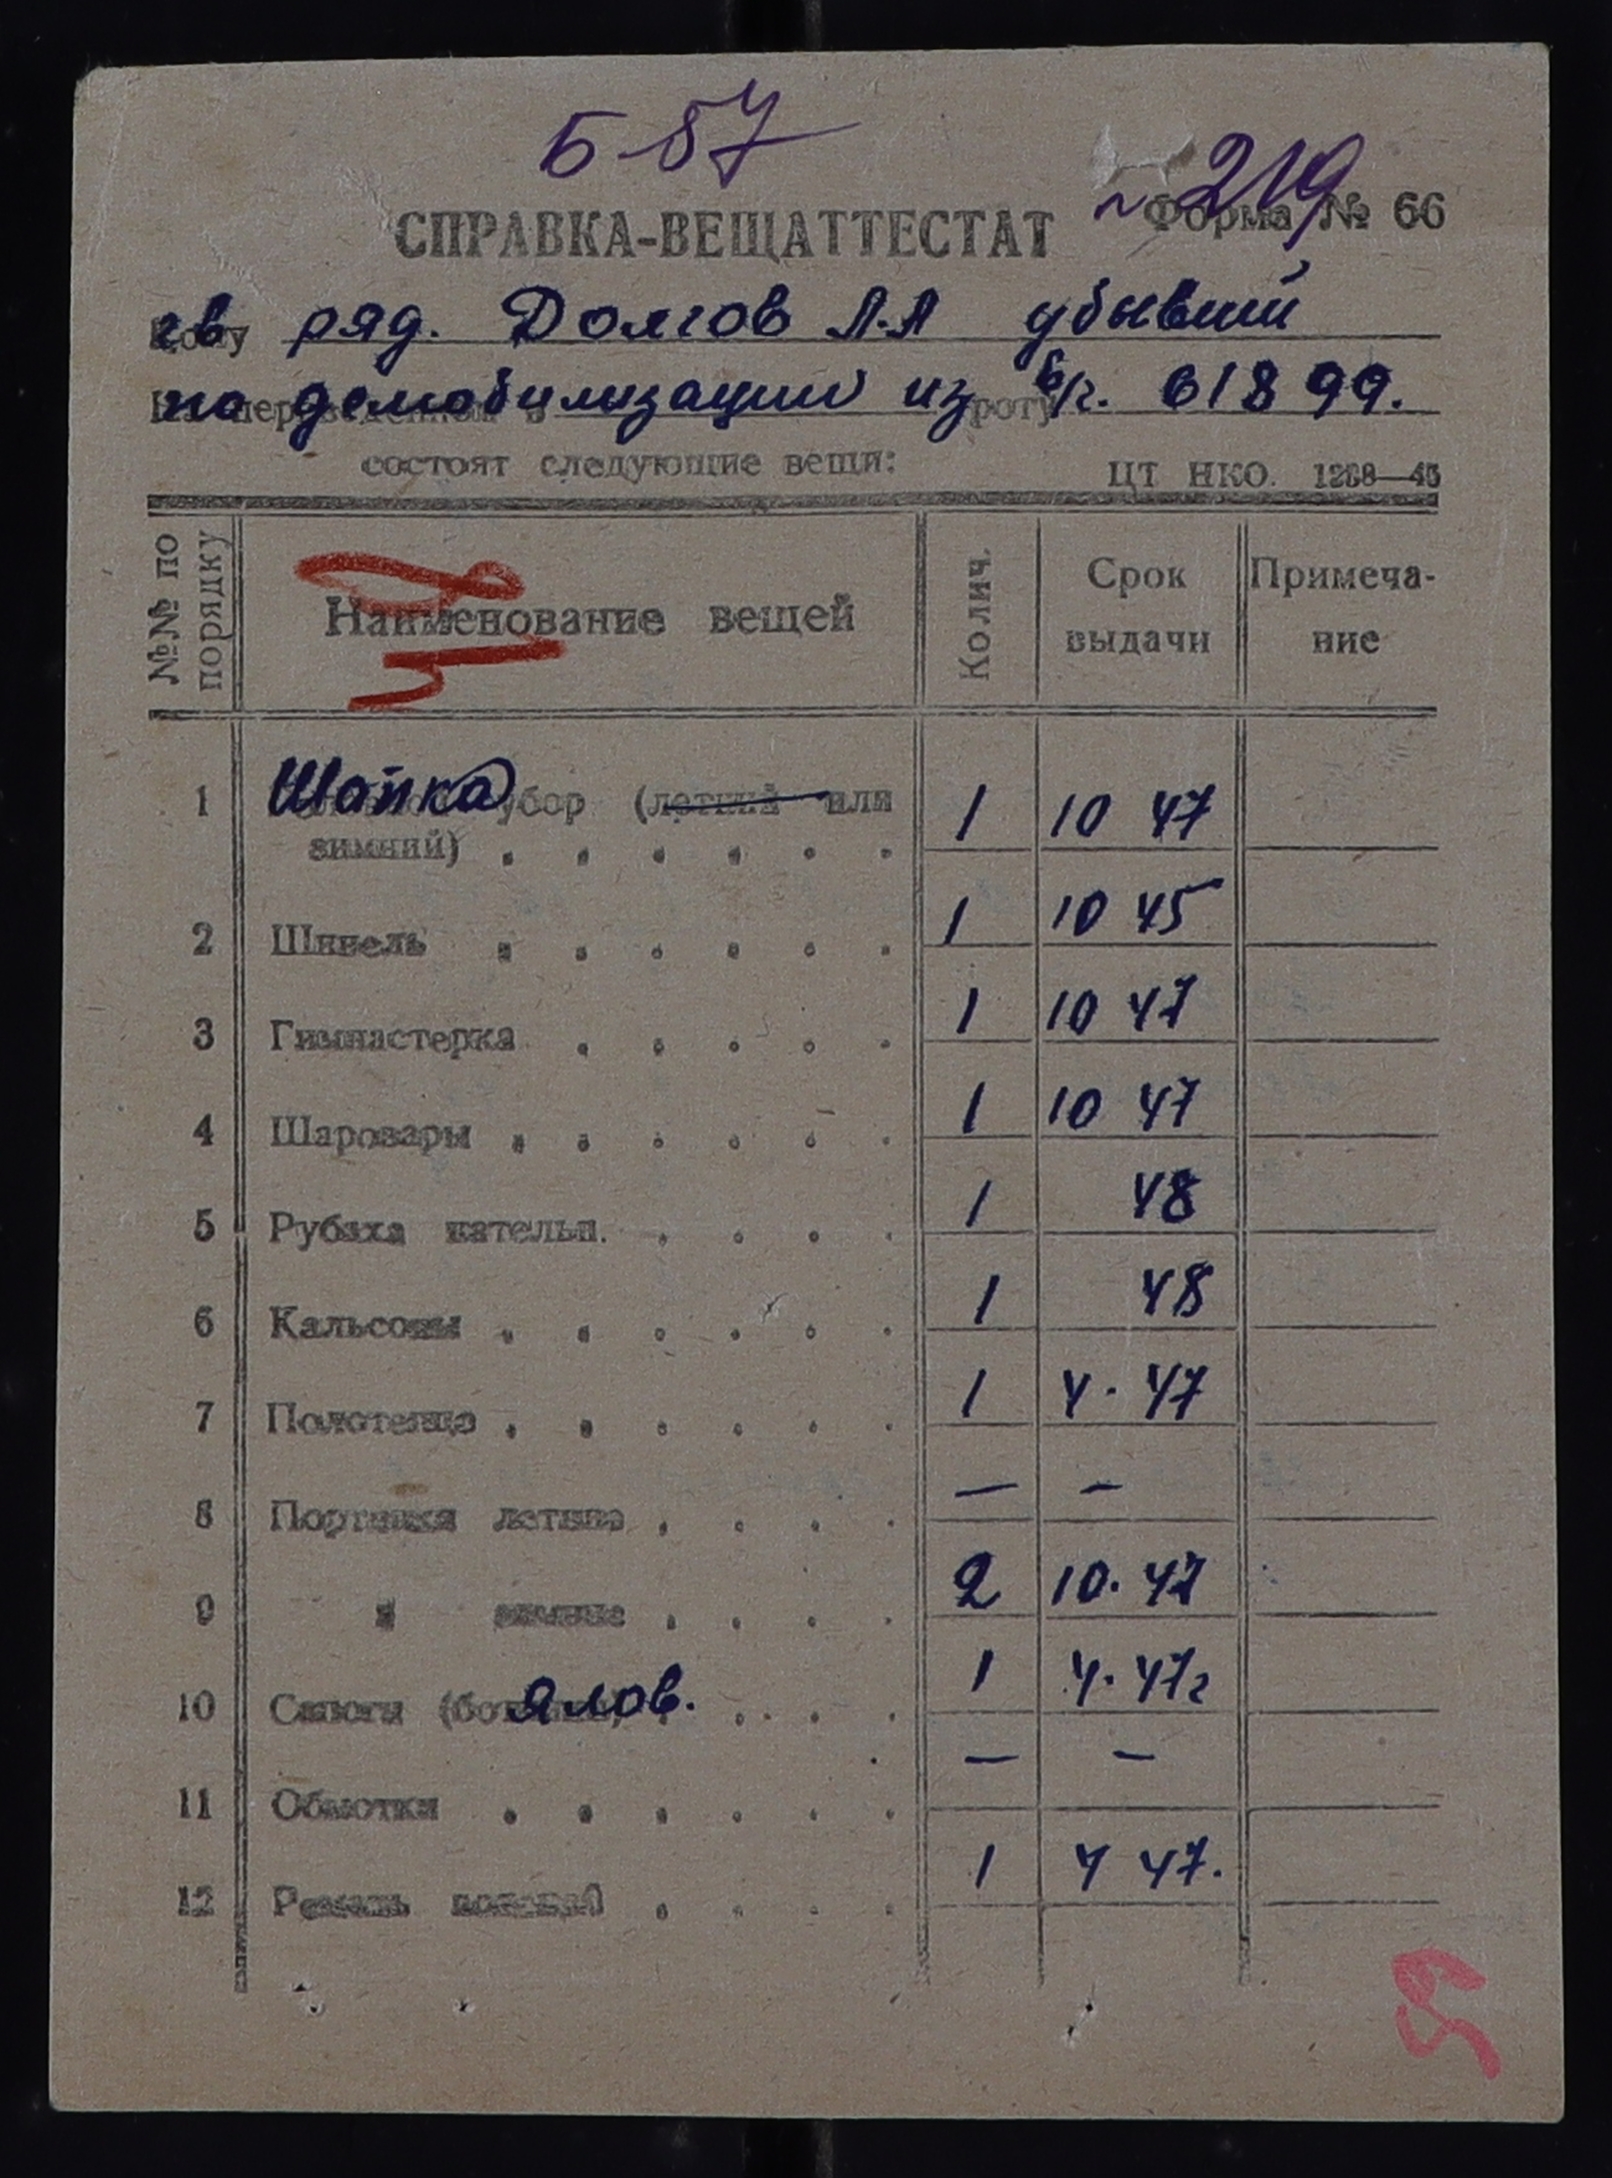 Б-87
219
Форма № 66
СПРАВКА-ВЕЩАТТЕСТАТ
гв ряд. Долгов А.А убывший
по демобилизации из в/ч. 61899.
состоят следующие вещи:
ЦТ НКО.
№№ по порядку Наименование вещей Колич. Срок выдачи Примеча-ние
1 Шапка убор (летний или 1 10 47
зимний)
2 Шинель 1 10 45
3 Гимнастерка 1 10 47
4 Шаровары 1 10 47
5 Рубаха нательн. 1 48
6 Кальсоны 1 48
7 Полотенце 1 4. 47
8 Портянки летние — —
9 " зимние 2 10. 47
10 Сапоги ялов. 1 4. 47г
11 Обмотки — —
12 Ремень поясной 1 4 47.